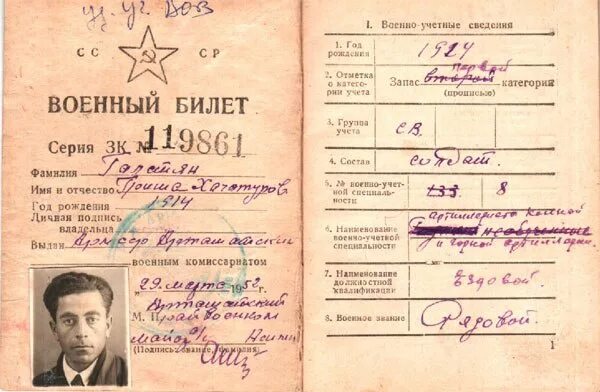 уд. уч. ВОВ
СС СР
ВОЕННЫЙ БИЛЕТ
Серия ЗК № 119861
Фамилия Галстян
Имя и отчество Гриша Хачатуров.
Год рождения 1914
Личная подпись
владельца
Выдан Армсср Арташатский
военным комиссариатом
„29 марта 1952
Арташатский
М. П. Райвоенком
майор
(Подпись, звание, фамилия)
I. Военно-учетные сведения
1. Год рождения 1924
2. Отметка о категории учета Запас второй первой категории
(прописью)
3. Группа учета СВ.
4. Состав солдат.
5. № военно-учетной специальности 133 8
6. Наименование военно-учетной специальности артиллерист конной необученные и горной артиллерии.
7. Наименование должностной квалификации Ездовой.
8. Военное звание Рядовой.
1